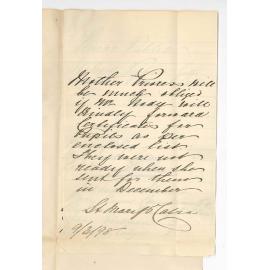 Mother Princess will
be much obliged
if Mr May will
Kindly forward
Certificates for
Pupils as per
enclosed list
They were not
ready when she
sent for them
in December
St Mary's
9/2/98